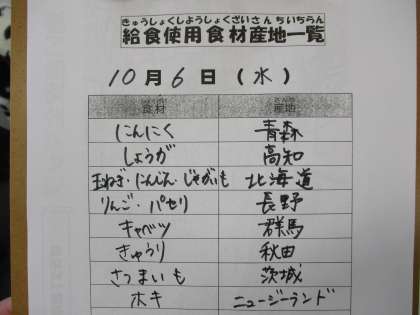 きゅうしょくしようしょくざいさんちいちらん
給食使用食材産地一覧
10月6日(水)
食材 産地
にんにく 青森
しょうが 高知
玉ねぎ・にんじん・じゃがいも 北海道
りんご・パセリ 長野
キャベツ 群馬
きゅうり 秋田
さつまいも 茨城
ホキ ニュージーランド